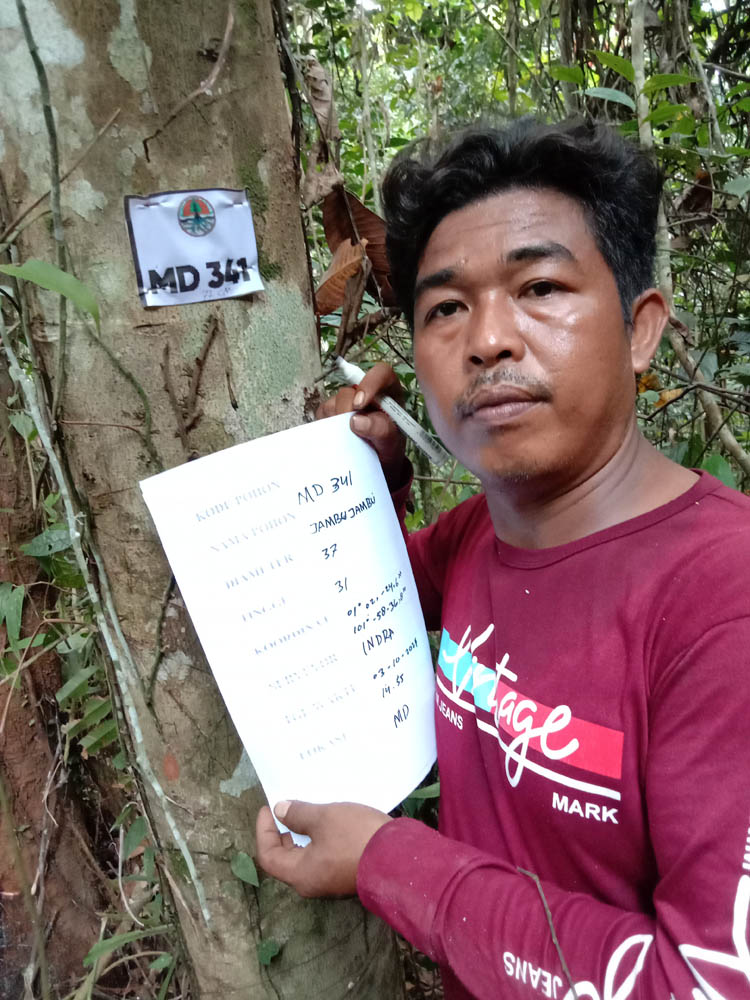 MD 341
KODE POHON MD 341
NAMA POHON JAMBU JAMBU
DIAMETER 37
TINGGI 31
KOORDINAT 01° 02. -24.6"
101° -58-36.8"
SURVEYOR INDRA
TGL/WAKTU 03-10-2021
14.55
LOKASI MD
Vintage
JEANS
MARK
JEANS